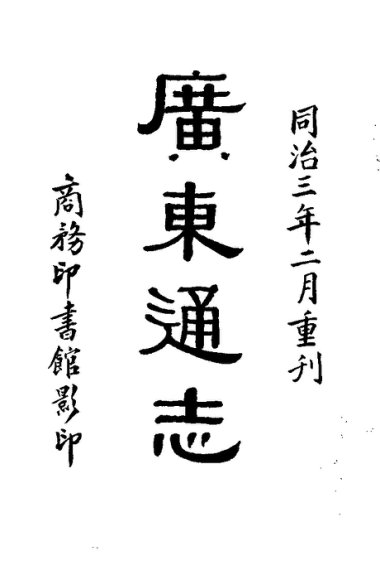 同治三年二月重刊
廣東通志
商務印書館影印